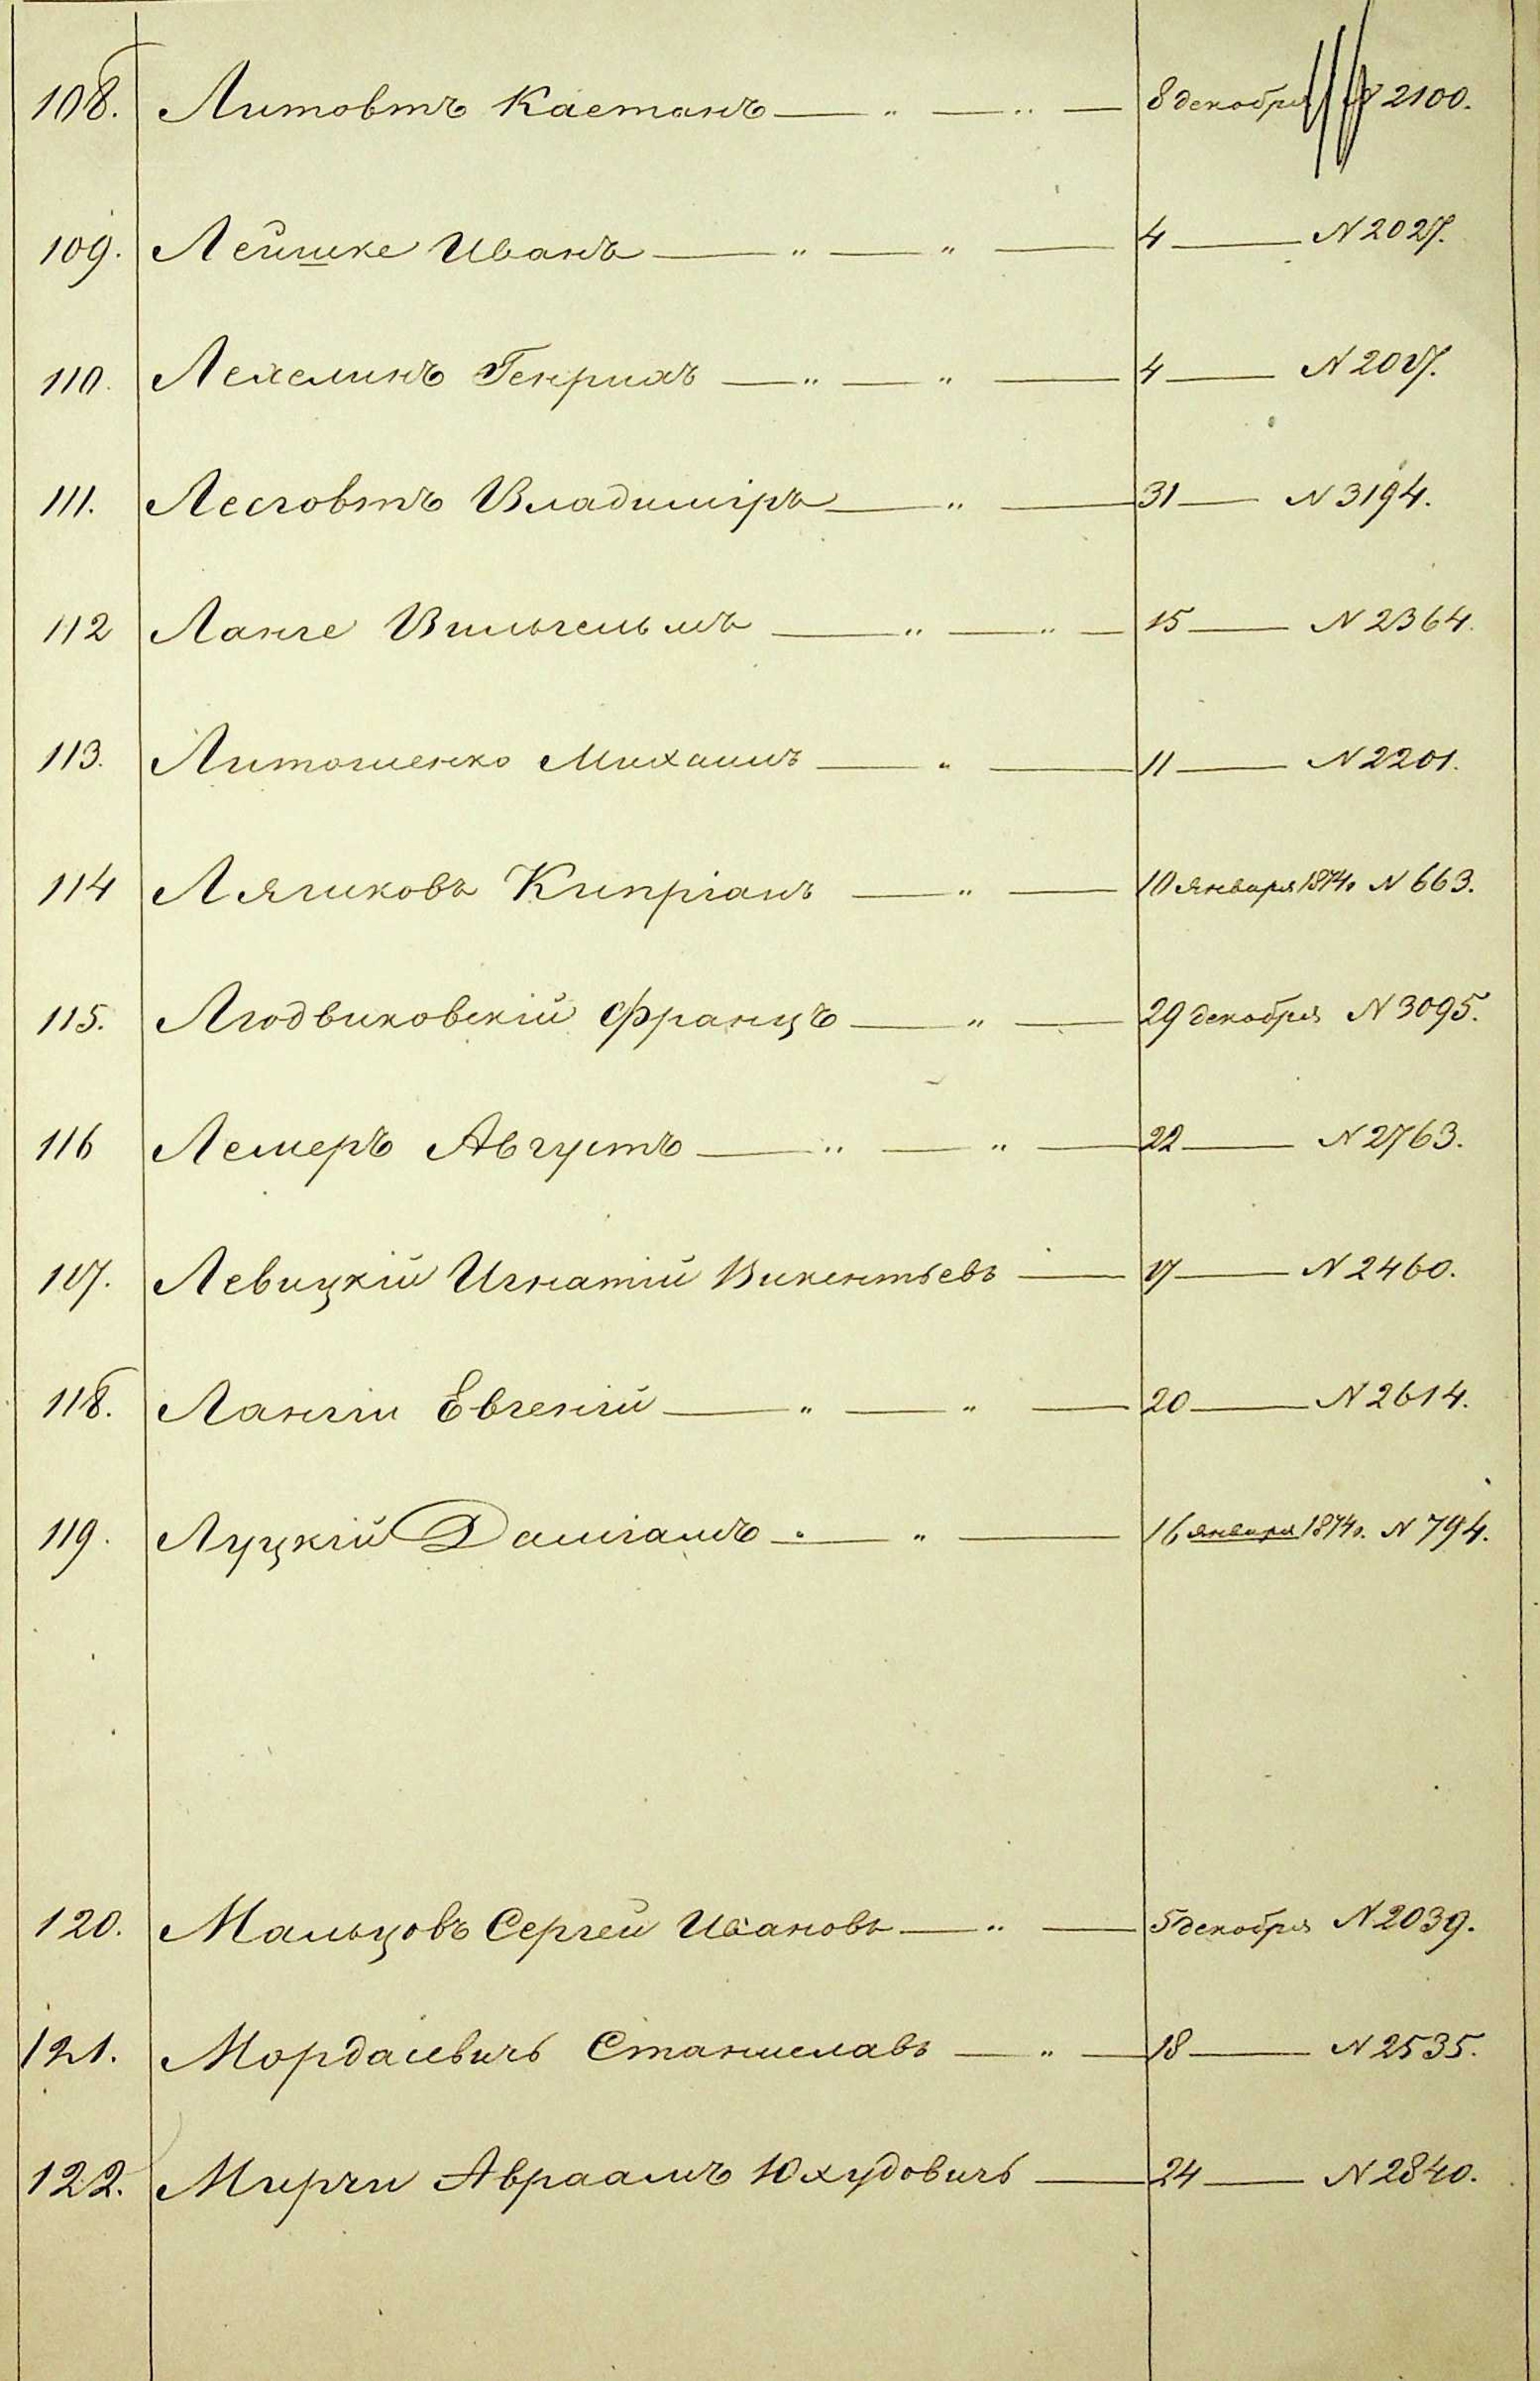 108. Литовтъ Каетанъ — „ — „ — 8 декабря № 2100.
109. Лейшке Иванъ — „ — „ — 4 — № 2027.
110. Лехелинъ Генрихъ — „ — „ — 4 — № 2017.
111. Лесговтъ Владиміръ — „ — 31 — № 3194.
112 Ланге Вильгельмъ — „ — „ — 15 — № 2364.
113. Литошенко Михаилъ — „ — 11 — № 2201.
114 Лягиковъ Кипріанъ — „ — 10 января 1874 № 663.
115. Людвиковскій Францъ — „ — 29 декабря № 3095.
116 Лемеръ Августъ — „ — „ — 22 — № 2763.
117. Левицкій Игнатій Викентьевъ — 17 — № 2460.
118. Лангги Евгеній — „ — „ — 20 — № 2614.
119. Луцкій Даміамъ — „ — 16 января 1874. № 794.
120. Мальцовъ Сергей Ивановъ — „ — 5 декабря № 2039.
121. Мордасевичъ Станиславъ — „ — 18 — № 2535.
122. Авраамъ Юхудовичъ — 24 — № 2840.